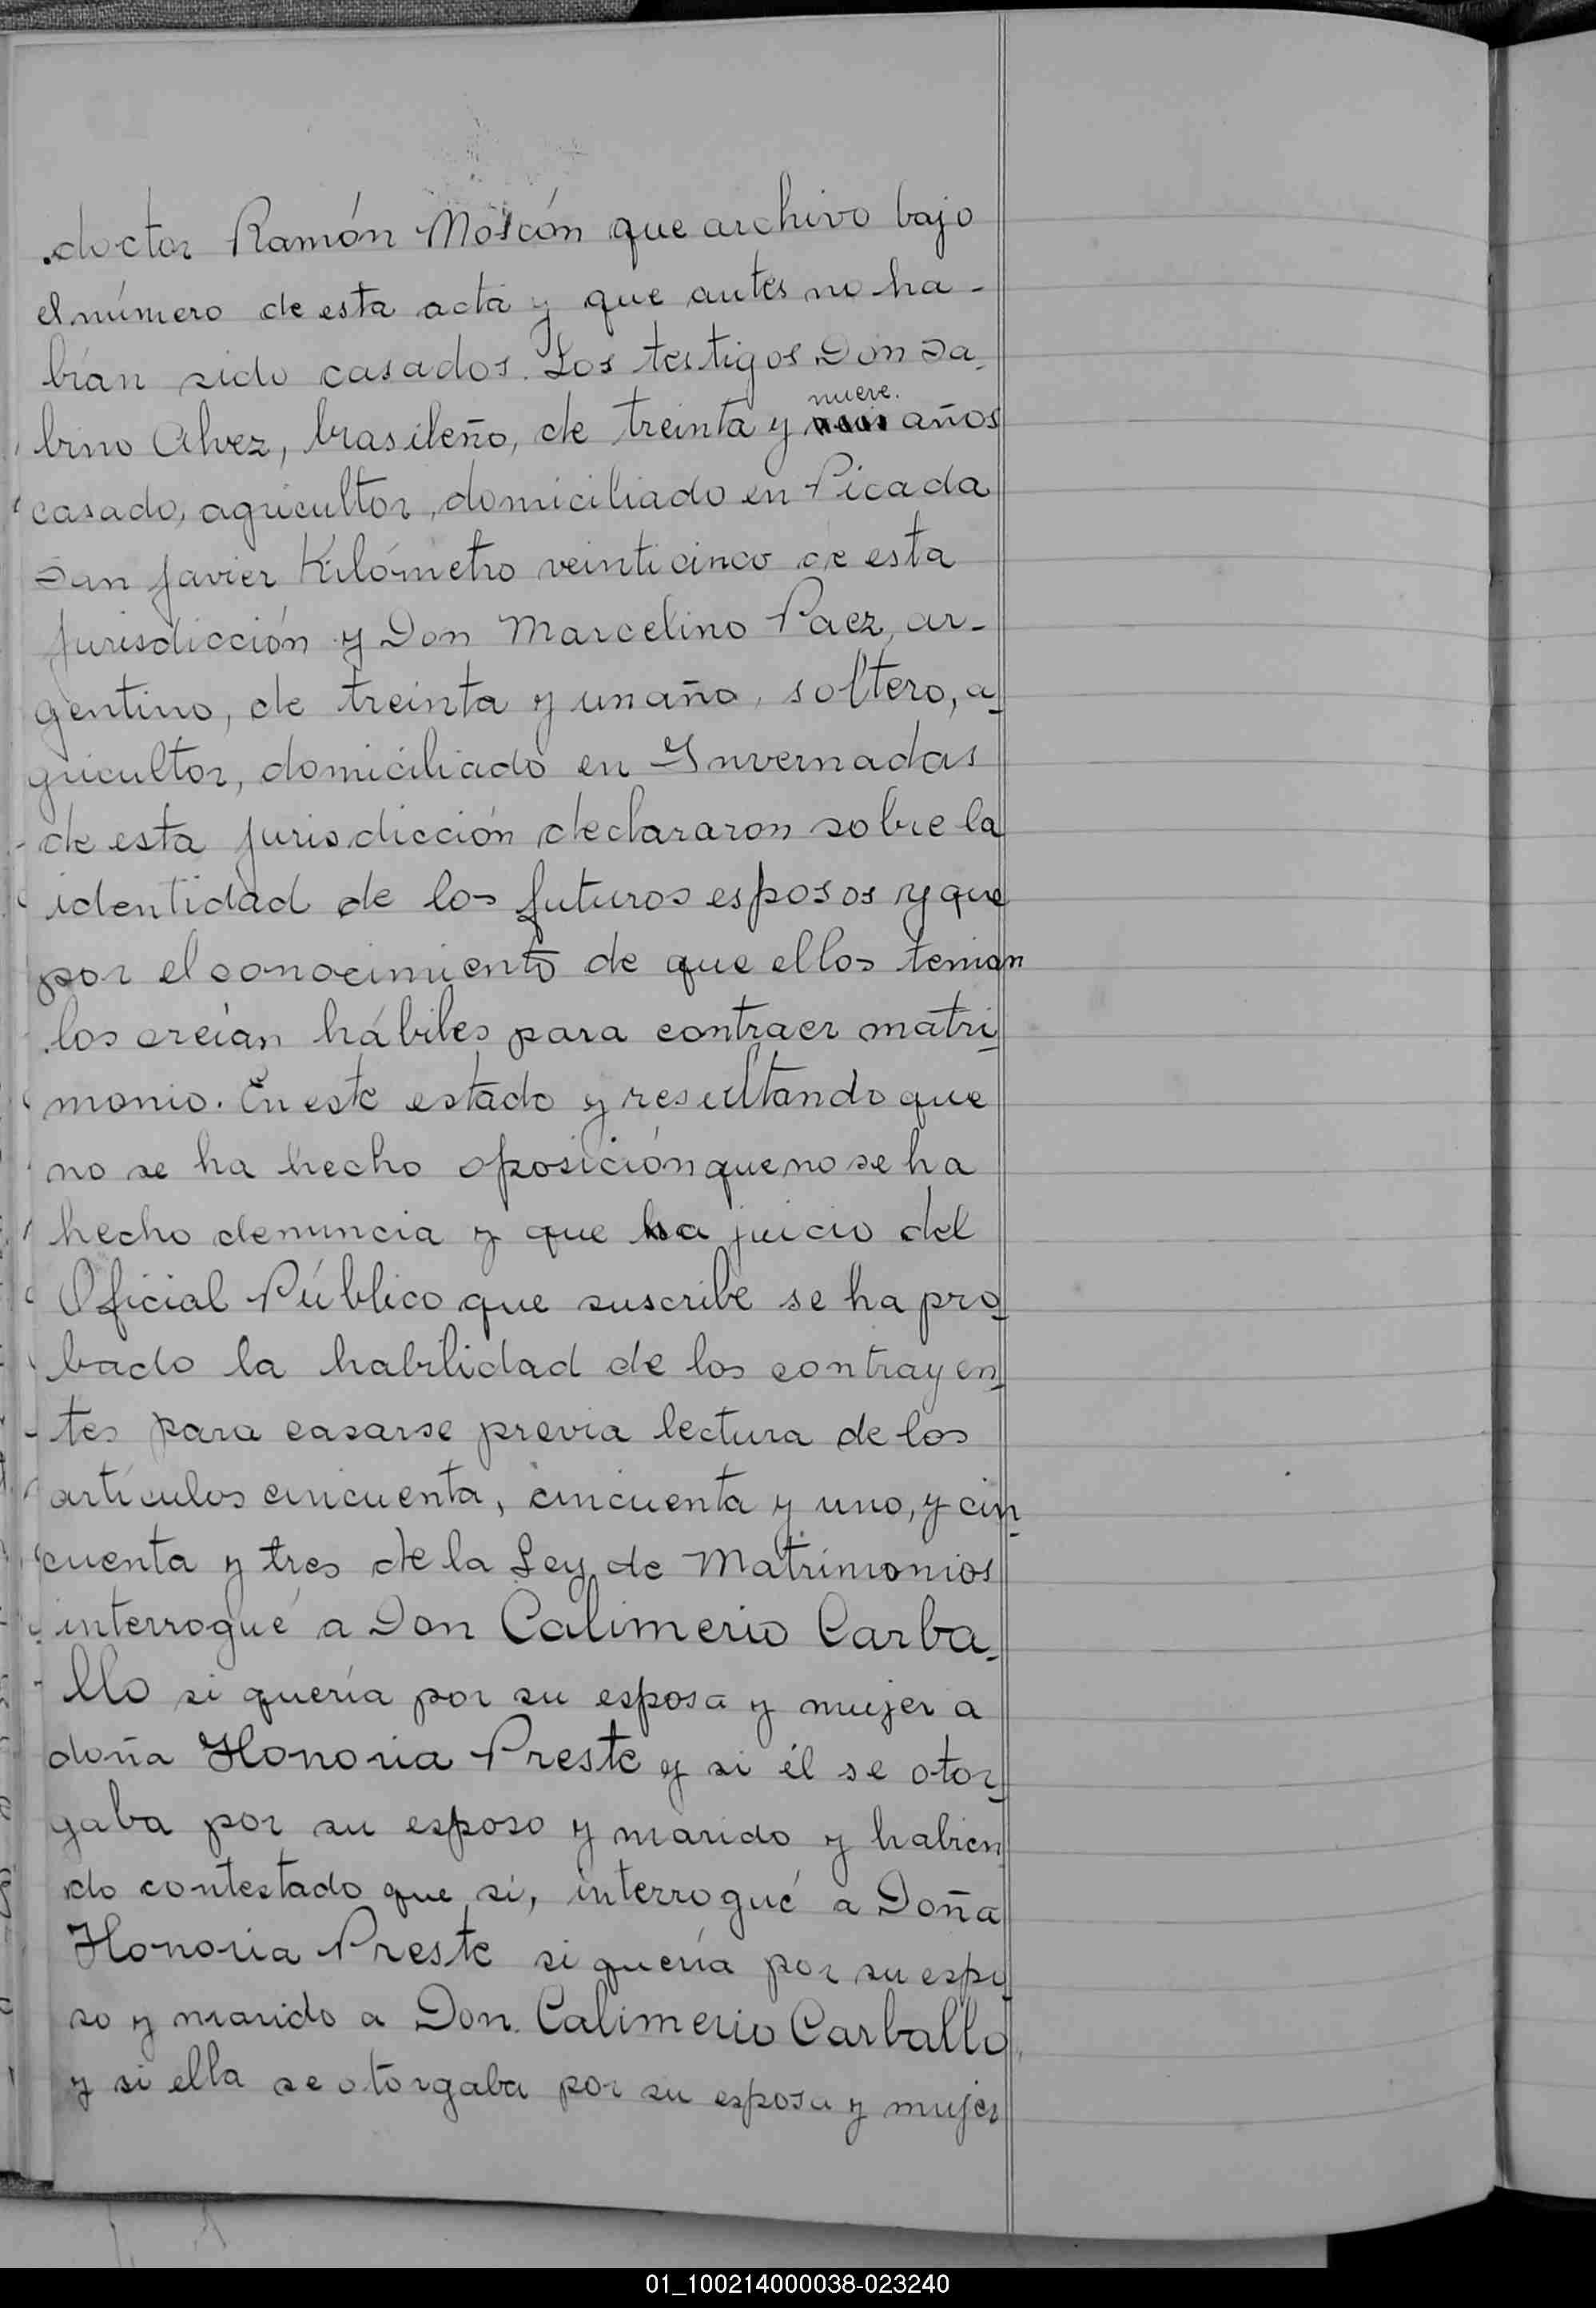 doctor Ramón Moscón que archivo bajo
el número de esta acta y que antes no ha-
bían sido casados. Los testigos Don Sa-
nueve.
brino Alvez, brasileño, de treinta y años
casado, agricultor, domiciliado en Picada
San Javier Kilómetro veinticinco de esta
jurisdicción y Don Marcelino Paez, ar-
gentino, de treinta y un año, soltero, a-
gricultor, domiciliado en Invernadas
de esta jurisdicción declararon sobre la
identidad de los futuros esposos y que
por el conocimiento de que ellos tenian
los creían hábiles para contraer matri-
monio. En este estado y resultando que
no se ha hecho oposición que no se ha
hecho denuncia y que ha juicio del
Oficial Público que suscribe se ha pro-
bado la habilidad de los contrayen-
tes para casarse previa lectura de los
artículos cincuenta, cincuenta y uno, y cin-
cuenta y tres de la Ley de Matrimonios
interrogué a Don Calimerio Carba-
llo si quería por su esposa y mujer a
doña Honoria Preste y si él se otor-
gaba por su esposo y marido y habien
do contestado que si, interrogué a Doña
Honoria Preste si quería por su espo-
so y marido a Don. Calimerio Carballo
y si ella se otorgaba por su esposa y mujer
01_100214000038-023240